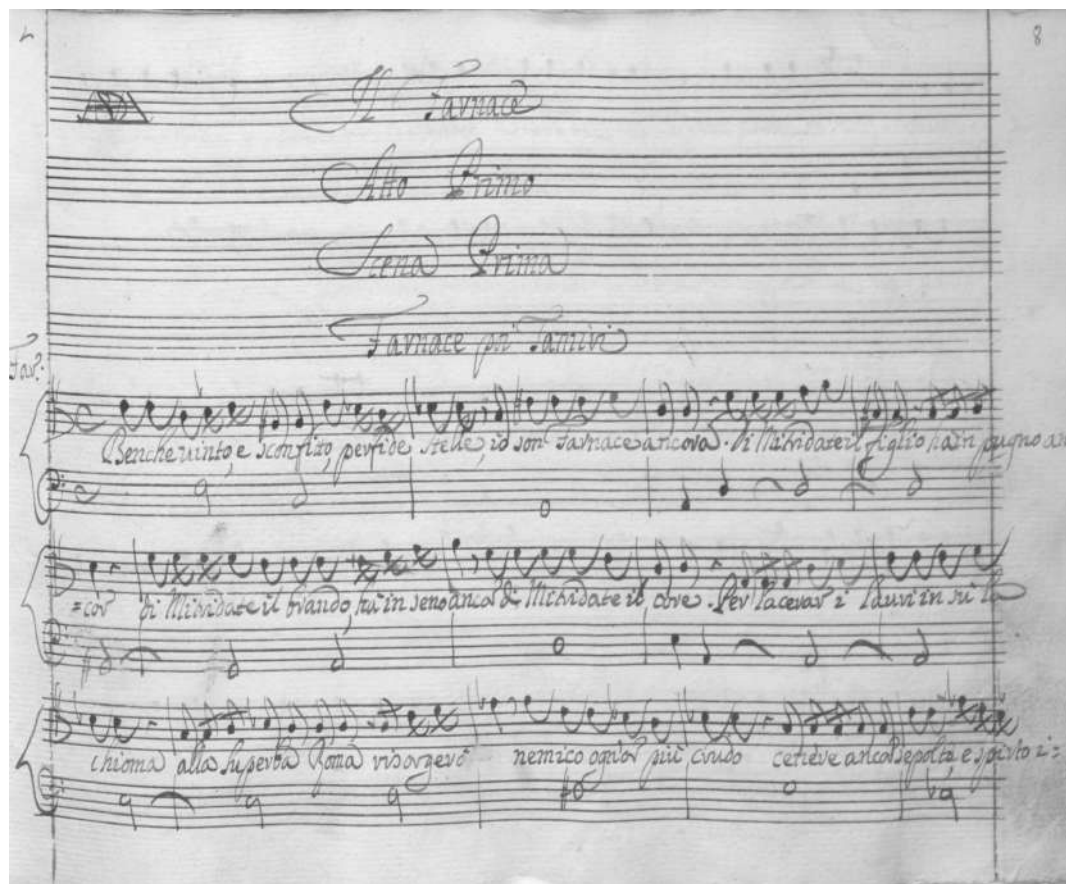 8
Il Farnace
Atto Primo
Scena Prima
Farnace poi Tamiri
Far:
Benche uinto, e sconfitto, perfide stelle, io son Farnace ancora. Di Mitridate il figlio ha in pugno an
=cor di Mitridate il brando, hà in seno ancor di Mitridate il core. Per lacerar i lauri in sù la
chioma alla superba Roma risorgerò nemico ogn'or più crudo cenere ancor sepolta, e spirto i=